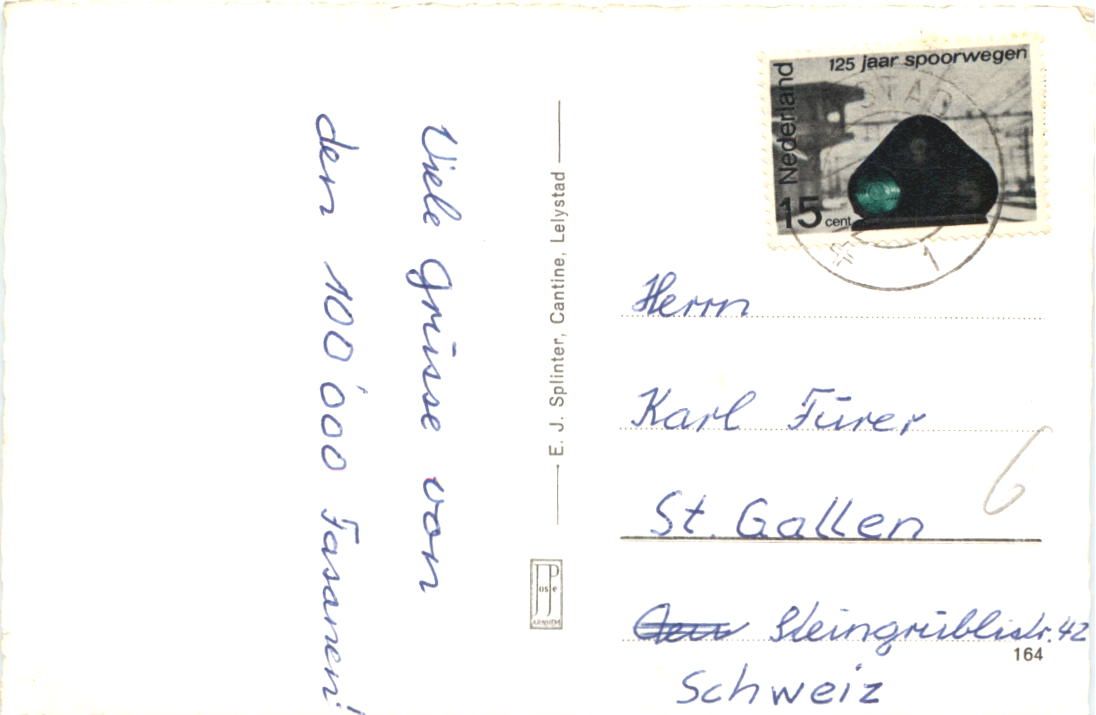 Viele Grüsse von
den 100'000 Fasanen!
E. J. Splinter, Cantine, Lelystad
JosPé
ARNHEM
125 jaar spoorwegen
Nederland
15 cent
STAD
1
Herrn
Karl Fürer
St. Gallen
Steingrüblistr. 42
164
Schweiz
6